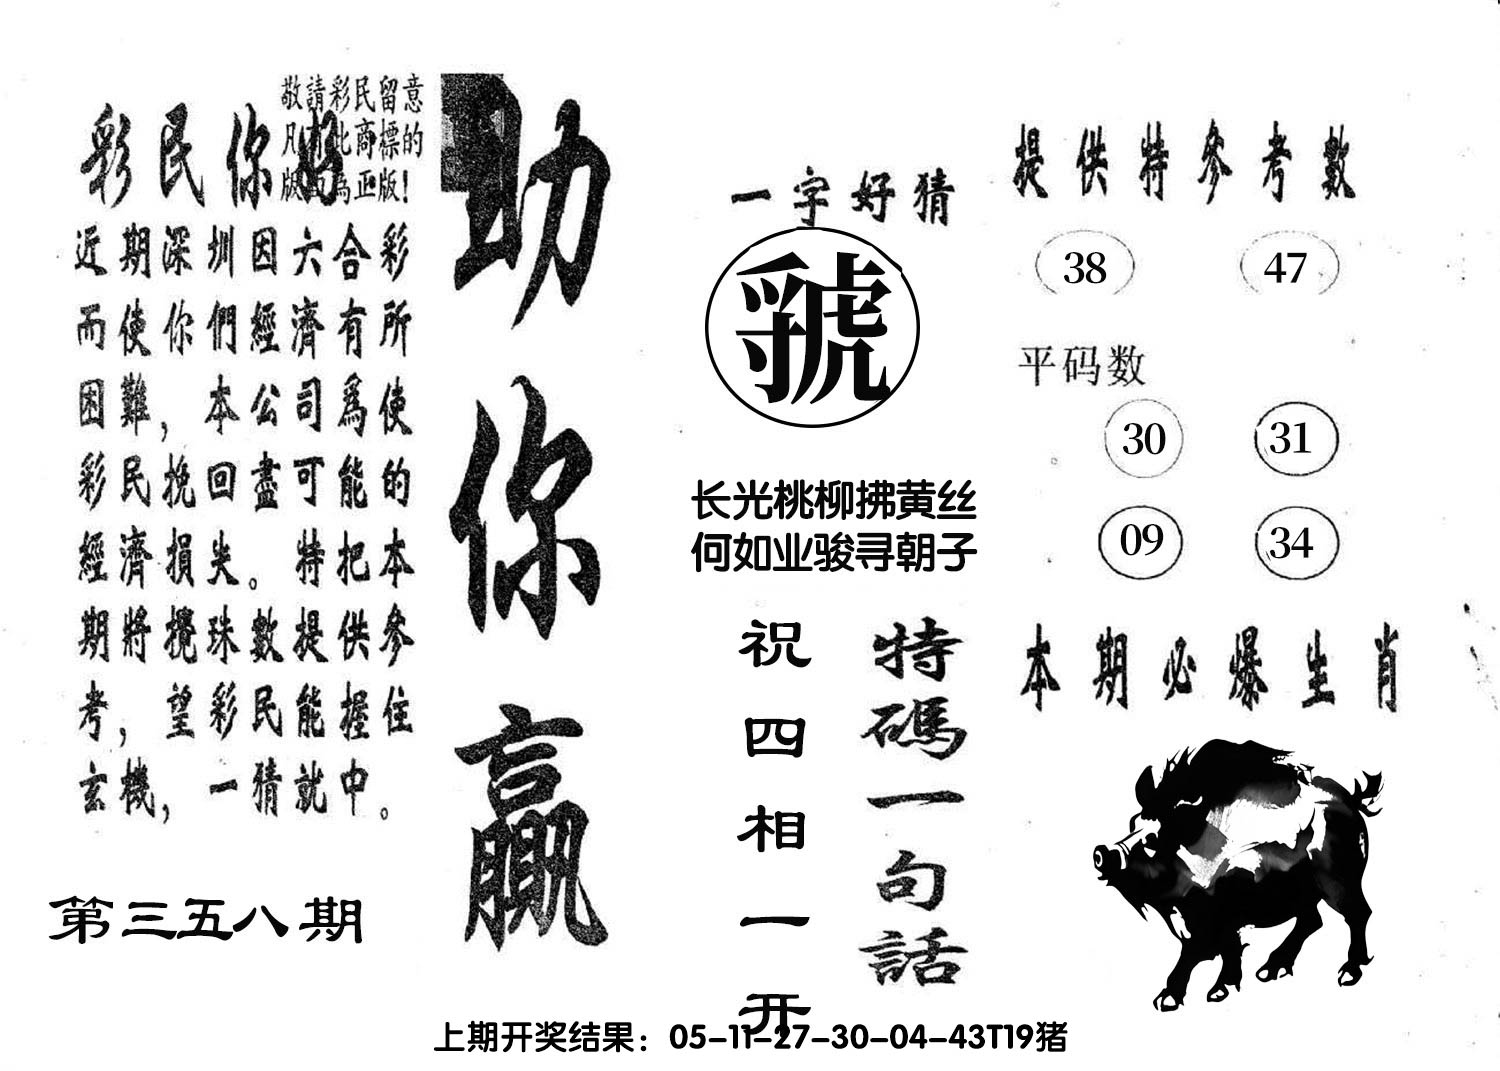 敬請彩民留意
凡有此商標的
版面為正版！
彩民你好
近期深圳因六合彩
而使你們經濟有所
困難，本公司爲使
彩民挽回盡可能的
經濟損失。特把本
期將攪珠數提供參
考，望彩民能握住
玄機，一猜就中。
第三五八期
助你贏
一字好猜
號
长光桃柳拂黄丝
何如业骏寻朝子
特碼一句話
祝四相一开
提供特參考數
38 47
平码数
30 31
09 34
本期必爆生肖
上期开奖结果：05-11-27-30-04-43T19猪